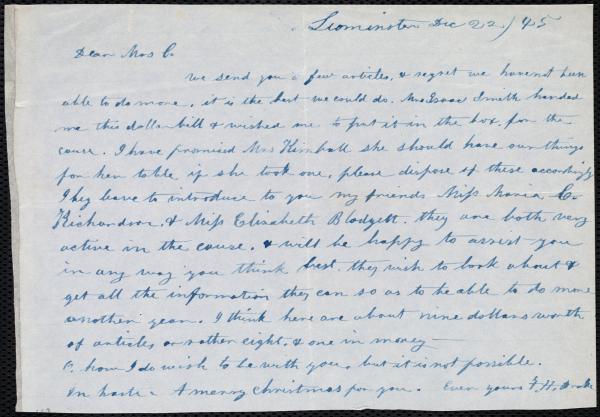 Leominster Dec 22 / 45
Dear Mrs C.
We send you a few articles, & regret we have not been
able to do more, it is the best we could do. Mrs Isaac Smith handed
me this dollar bill & wished me to put it in the box, for the
cause. I have promised Mrs Kimball she should have our things
for her table if she took one, please dispose of these accordingly
I beg leave to introduce to you my friends Miss Maria C.
Richardson, & Miss Elizabeth Blodgett, they are both very
active in the cause, & will be happy to assist you
in any way you think best. they wish to look about &
get all the information they can so as to be able to do more
another year. I think here are about nine dollars worth
of articles or rather eight, & one in money —
O, how I do wish to be with you, but it is not possible.
In haste - A merry Christmas for you. Ever yours F. H. Drake